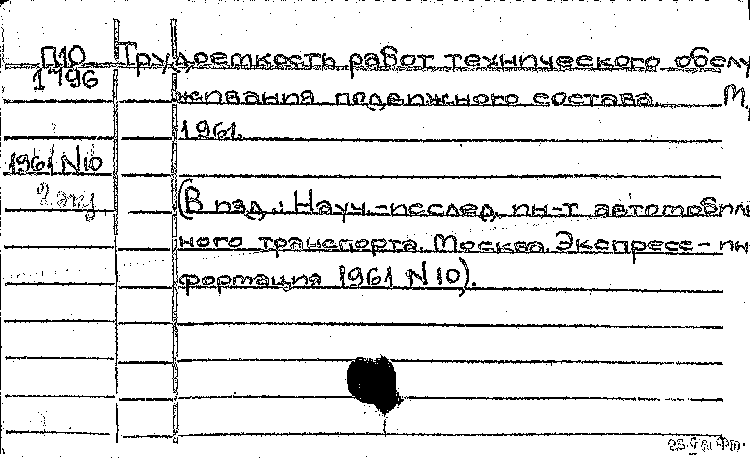 П10 Трудоемкость работ технического обслу
1796
живания подвижного состава. М,
1961.
1961 N10
2 экз
(В изд.: Науч.-исслед. ин-т автомобиль
ного транспорта. Москва. Экспресс-ин
формация 1961 N10).